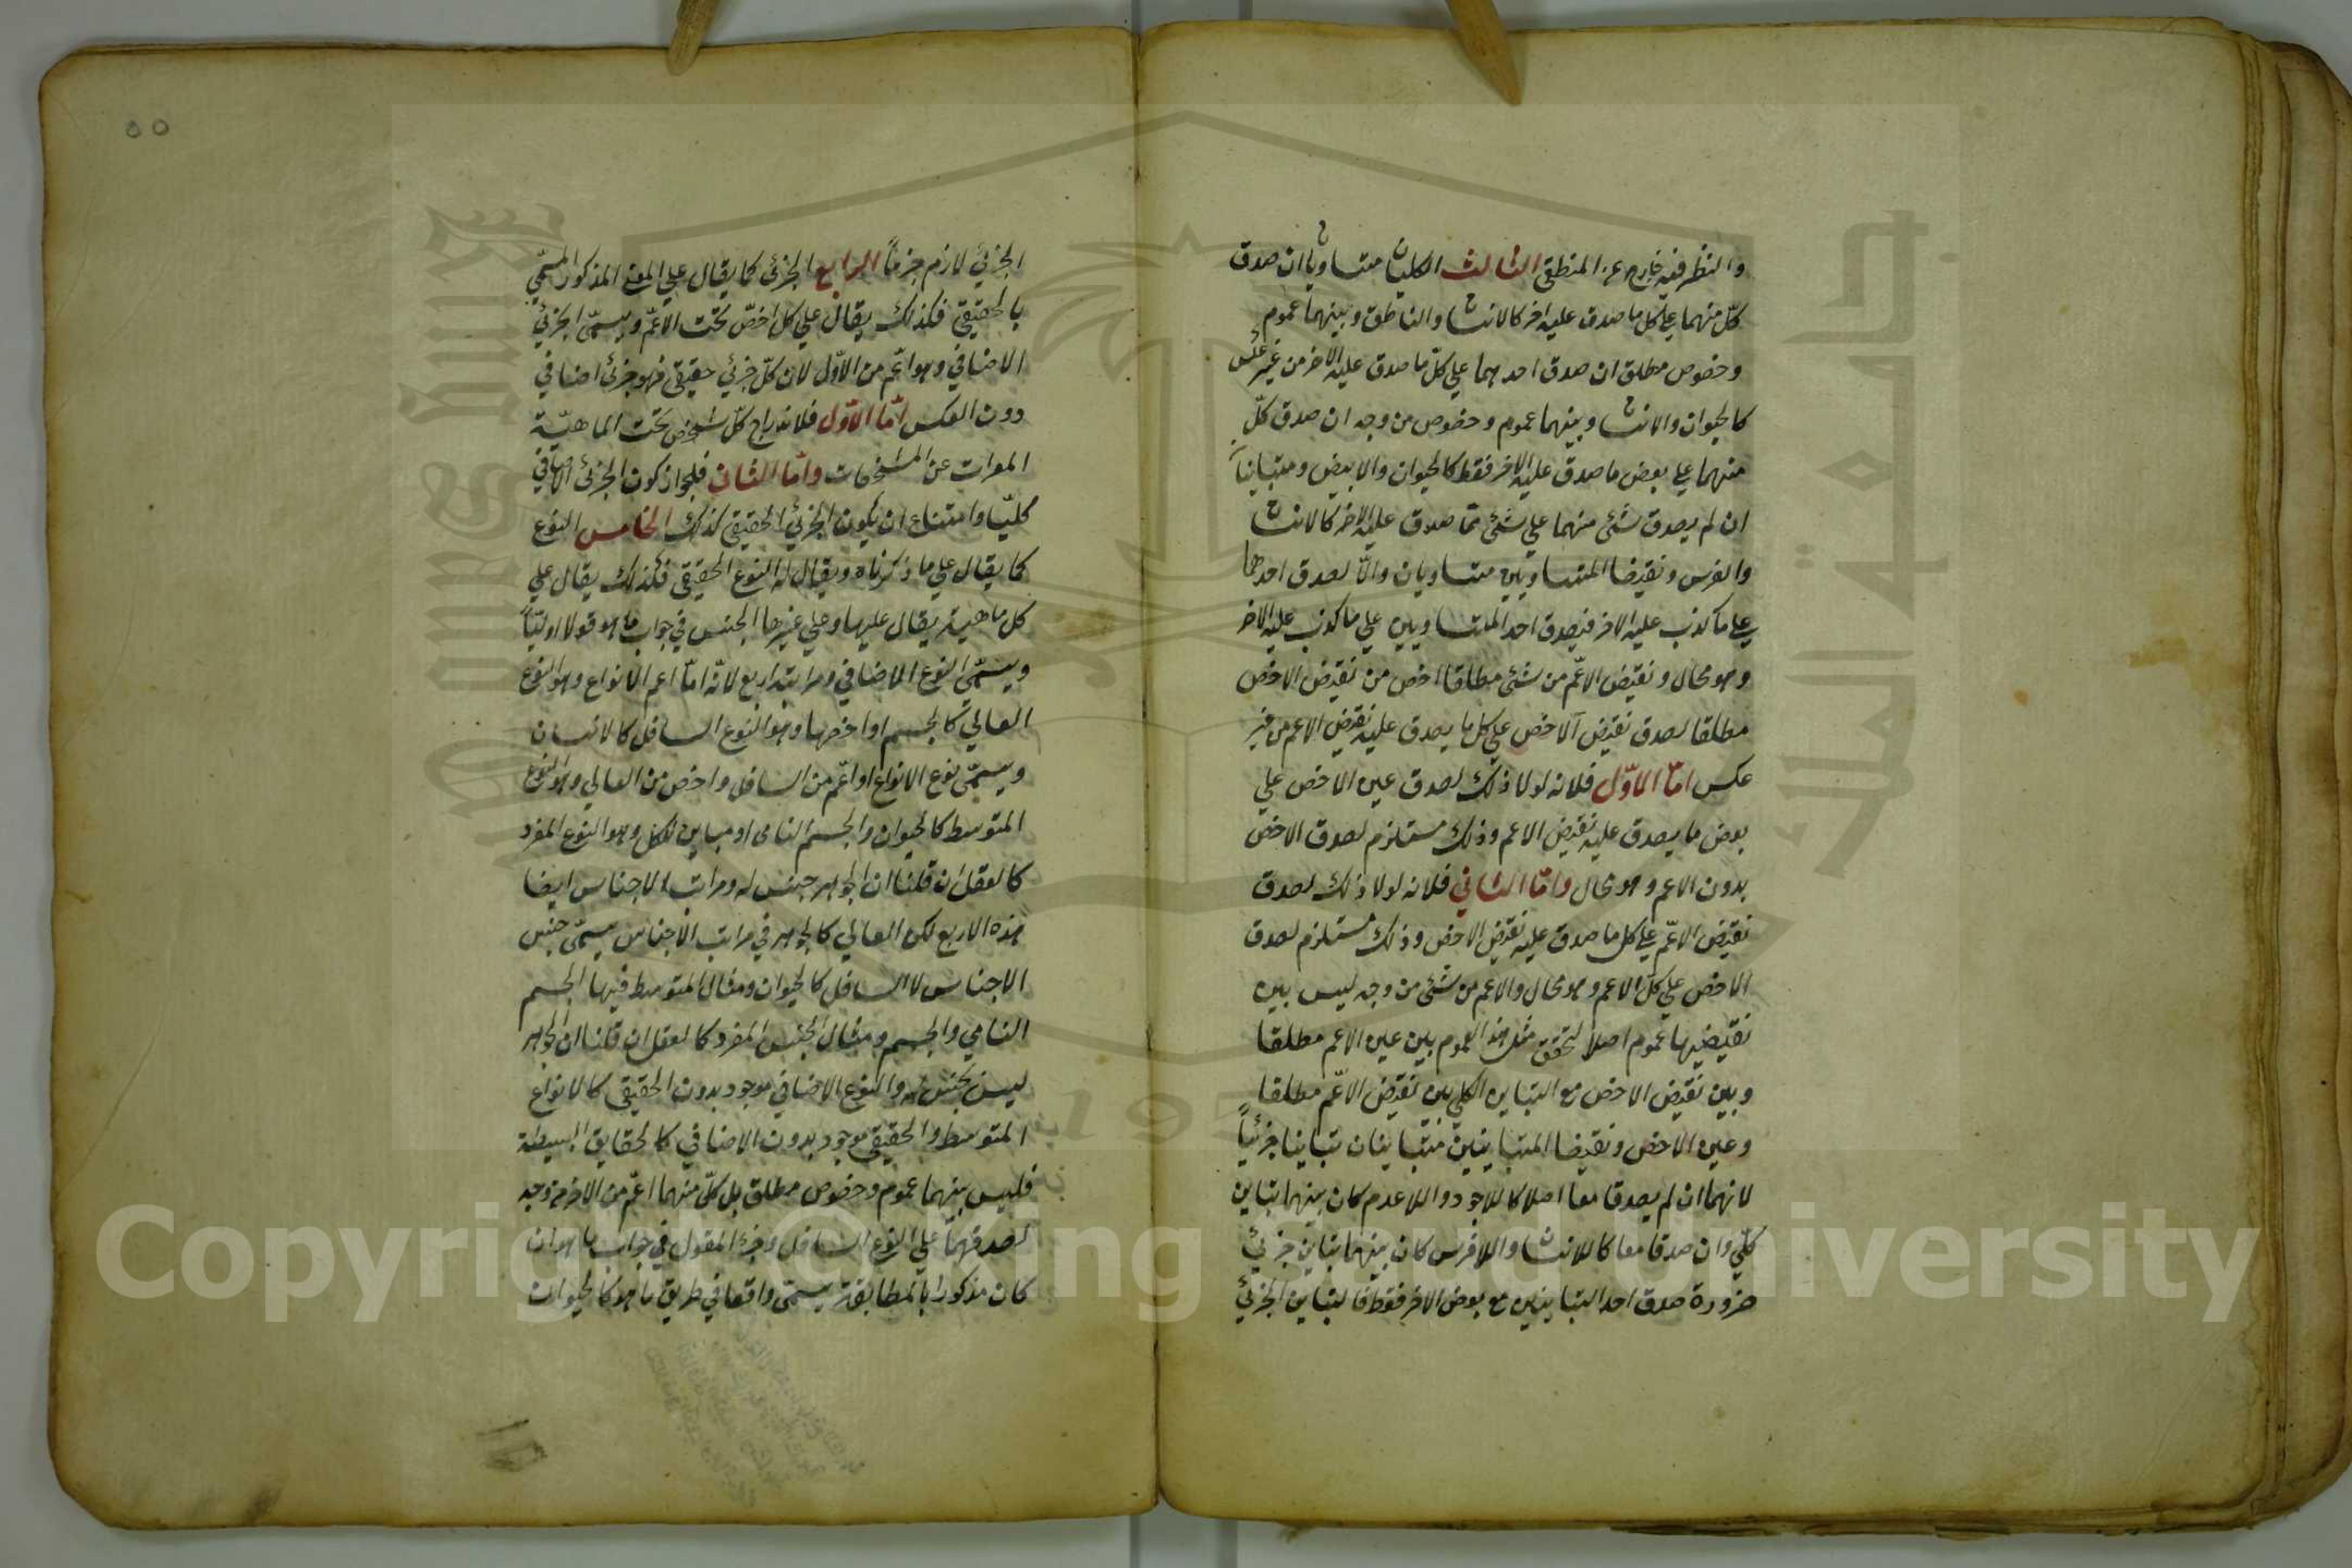 والنظر فيه خارج عن المنطق الثالث الكليان متساويان ان صدق
كل منهما على كل ما صدق عليه اخر كالانسان والناطق وبينهما عموم
وخصوص مطلق ان صدق احدهما على كلّ ما صدق عليه الاخر من غير عكس
كالحيوان والانسان وبينهما عموم وخصوص من وجه ان صدق كلّ
منهما على بعض ما صدق عليه الاخر فقط كالحيوان والابيض ومتباينان
ان لم يصدق شئ منهما على شئ ممّا صدق عليه الاخر كالانسان
والفرس ونقيضا المتساويين متساويان والّا لصدق احدهما
على ما كذب عليه الاخر فيصدق احد المتساويين على ما كذب عليه الاخر
وهو محال ونقيض الاعّم من شئ مطلقا اخص من نقيض الاخص
مطلقا لصدق نقيض الاخص على كل ما يصدق عليه نقيض الاعم من غير
عكس امّا الاوّل فلانه لولا ذلك لصدق عين الاخص على
بعض ما يصدق عليه نقيض الاعم وذلك مستلزم لصدق الاخص
بدون الاعم وهو محال وامّا الثاني فلانه لولا ذلك لصدق
نقيض الاعّم على كل ما صدق عليه نقيض الاخص وذلك مستلزم لصدق
الاخص على كل الاعم وهو محال والاعم من شئ من وجه ليس بين
نقيضيهما عموم اصلا لتحقق مثل هذا العموم بين عين الاعم مطلقا
وبين نقيض الاخص مع التباين الكلي بين نقيض الاعّم مطلقا
وعين الاخص ونقيضا المتباينين متباينان تباينا جزئياً
لانهما ان لم يصدقا معا اصلا كاللاوجود واللاعدم كان بينهما تباين
كلّي وان صدقا معا كاللاانسان واللافرس كان بينهما تباين جزئي
ضرورة صدق احد المتباينين مع بعض الاخر فقط فالتباين الجزئي
٥٥
الجزئي لازم جزماً الرابع الجزئى كما يقال على المعنى المذكور المسمّى
بالحقيقي فكذلك يقال على كل اخصّ تحت الاعّم ويسمّى الجزئي
الاضافي وهو اعّم من الاوّل لان كلّ جزئي حقيقى فهو جزئى اضافي
دون العكس امّا الاوّل فلاندراج كلّ شخص تحت الماهيّة
المعرات عن المشخصات وامّا الثاني فلجواز كون الجزئى الاضافي
كليّا وامتناع ان يكون الجزئي الحقيقي كذلك الخامس النوع
كما يقال على ما ذكرناه ويقال له النوع الحقيقى فكذلك يقال على
كل ماهية يقال عليها وعلى غيرها الجنس في جواب ما هو قولا اوليّاً
ويسمّى النوع الاضافي ومراتبه اربع لانّه امّا اعم الانواع وهو النوع
العالي كالجسم او اخصها وهو النوع السافل كالانسان
ويسمّى نوع الانواع او اعّم من السافل واخص من العالي وهو النوع
المتوسط كالحيوان والجسم النامى او مباين للكل وهو النوع المفرد
كالعقل ان قلنا ان الجوهر جنس له ومراتب الاجناس ايضا
هذه الاربع لكن العالي كالجوهر في مراتب الاجناس يسمّى جنس
الاجناس لا السافل كالحيوان ومثال المتوسط فيها الجسم
النامي والجسم ومثال الجنس المفرد كالعقل ان قلنا ان الجوهر
ليس بجنس له والنوع الاضافي موجود بدون الحقيقى كالانواع
المتوسط والحقيقى موجود بدون الاضافي كالحقايق البسيطة
فليس بينهما عموم وخصوص مطلق بل كلّ منهما اعّم من الاخر من وجه
لصدقهما على النوع السافل وجزء المقول في جواب ما هو ان
كان مذكورا بالمطابقة يسمّى واقعا في طريق ما هو كالحيوان
Copyright © King Saud University